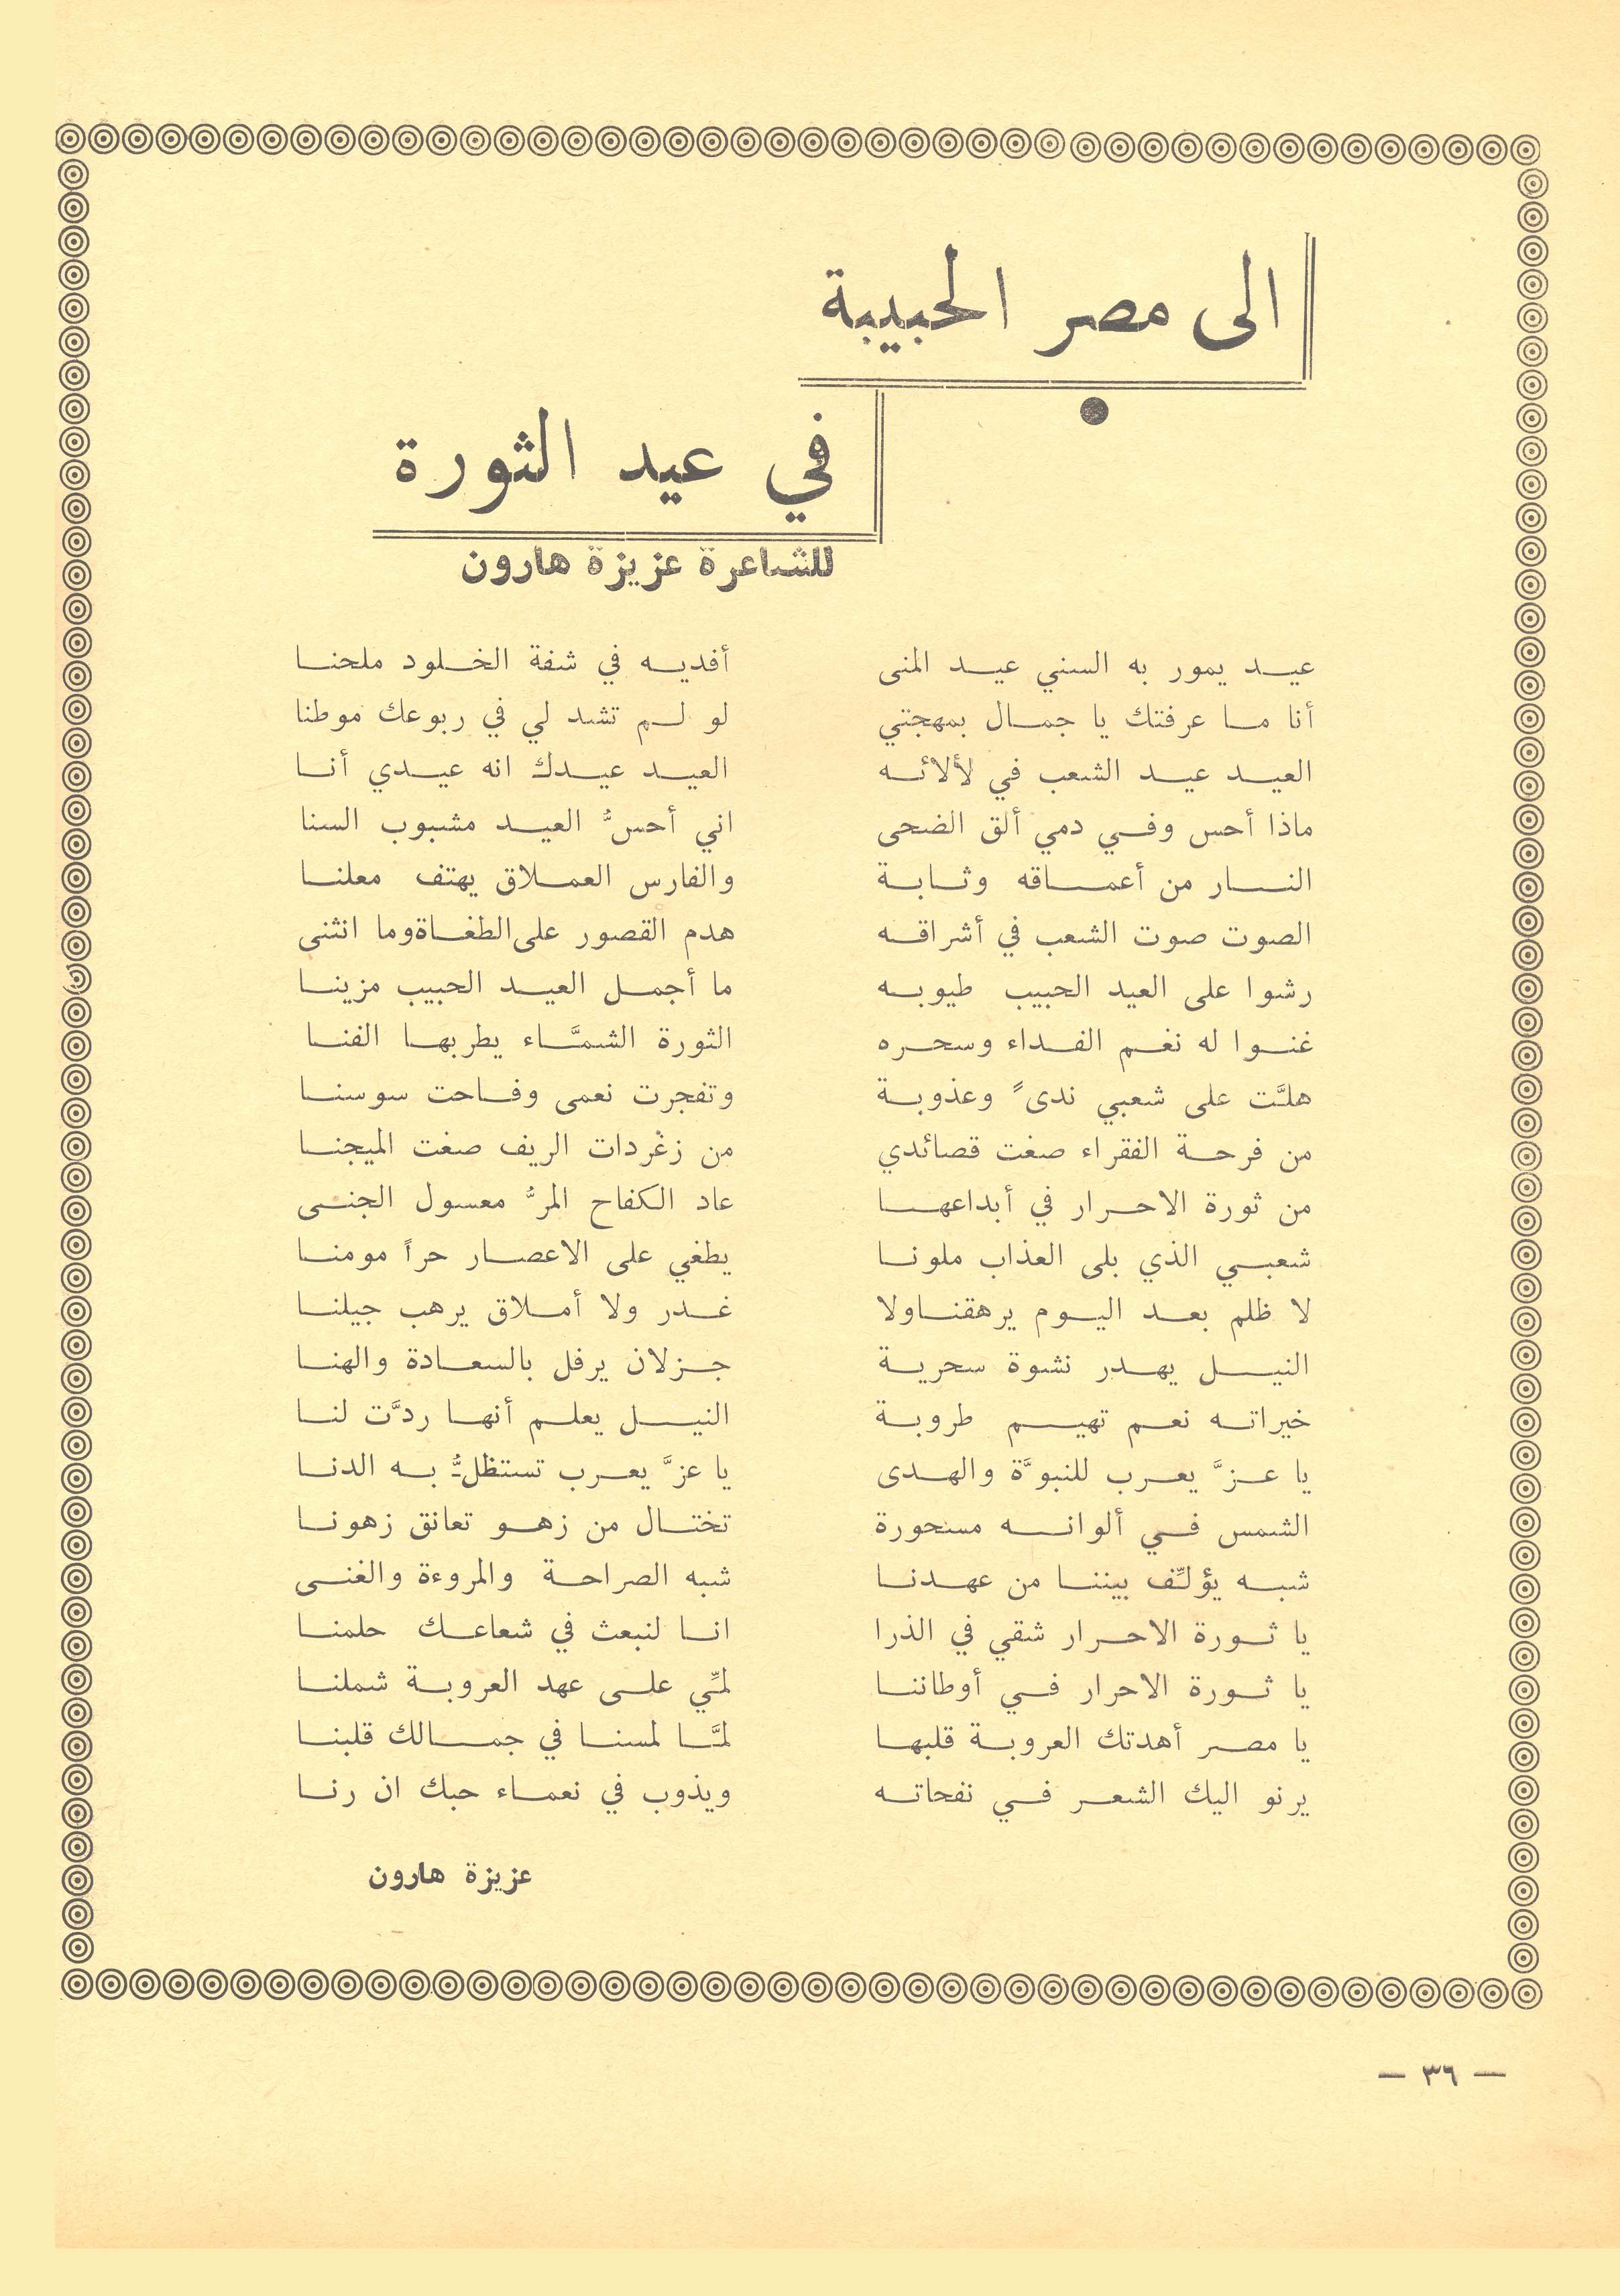 الى مصر الحبيبة
في عيد الثورة
للشاعرة عزيزة هارون
عيد يمور به السني عيد المنى أفديه في شفة الخلود ملحنا
أنا ما عرفتك يا جمال بمهجتي لو لم تشد لي في ربوعك موطنا
العيد عيد الشعب في لألائه العيد عيدك انه عيدي أنا
ماذا أحس وفي دمي ألق الضحى اني أحسُّ العيد مشبوب السنا
النار من أعماقه وثابة والفارس العملاق يهتف معلنا
الصوت صوت الشعب في أشراقه هدم القصور على الطغاة وما انثنى
رشوا على العيد الحبيب طيوبه ما أجمل العيد الحبيب مزينا
غنوا له نغم الفداء وسحره الثورة الشمَّاء يطربها الفنا
هلَّت على شعبي ندىً وعذوبة وتفجرت نعمى وفاحت سوسنا
من فرحة الفقراء صغت قصائدي من زغردات الريف صغت الميجنا
من ثورة الاحرار في أبداعها عاد الكفاح المرُّ معسول الجنى
شعبي الذي بلى العذاب ملونا يطغي على الاعصار حراً مومنا
لا ظلم بعد اليوم يرهقنا ولا غدر ولا أملاق يرهب جيلنا
النيل يهدر نشوة سحرية جزلان يرفل بالسعادة والهنا
خيراته نعم تهيم طروبة النيل يعلم أنها ردَّت لنا
يا عزَّ يعرب للنبوَّة والهدى يا عزَّ يعرب تستظلُّ به الدنا
الشمس في ألوانه مسحورة تختال من زهو تعانق زهونا
شبه يؤلِّف بيننا من عهدنا شبه الصراحة والمروءة والغنى
يا ثورة الاحرار شقي في الذرا انا لنبعث في شعاعك حلمنا
يا ثورة الاحرار في أوطاننا لمِّي على عهد العروبة شملنا
يا مصر أهدتك العروبة قلبها لمَّا لمسنا في جمالك قلبنا
يرنو اليك الشعر في نفحاته ويذوب في نعماء حبك ان رنا
عزيزة هارون
— ٣٦ —